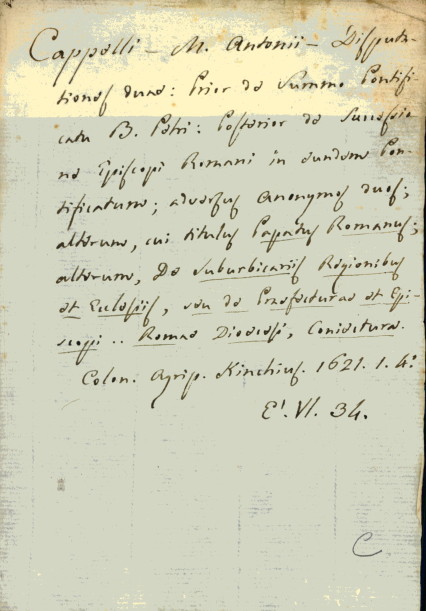 Cappelli - M. Antonii - Disputa-
tiones duae: Prior de Summo Pontifi-
catu B. Petri: Posterior de Successio-
ne Episcopi Romani in eundem Pon-
tificatum; adversus Anonymos duos;
alterum, cui titulus Papatus Romanus;
alterum, De Suburbicariis Regionibus
et Ecclesiis, seu de Praefecturae et Epi-
scopi .. Romae Dioecesi, Coniectura.
Colon. Agrip. Kinchius. 1621. 1. 4°
E'. VI. 34.
C